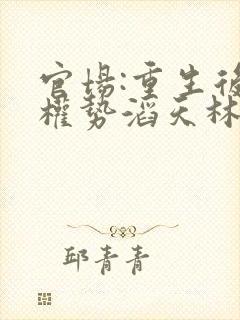 官場:重生後
權勢滔天林
邱青青